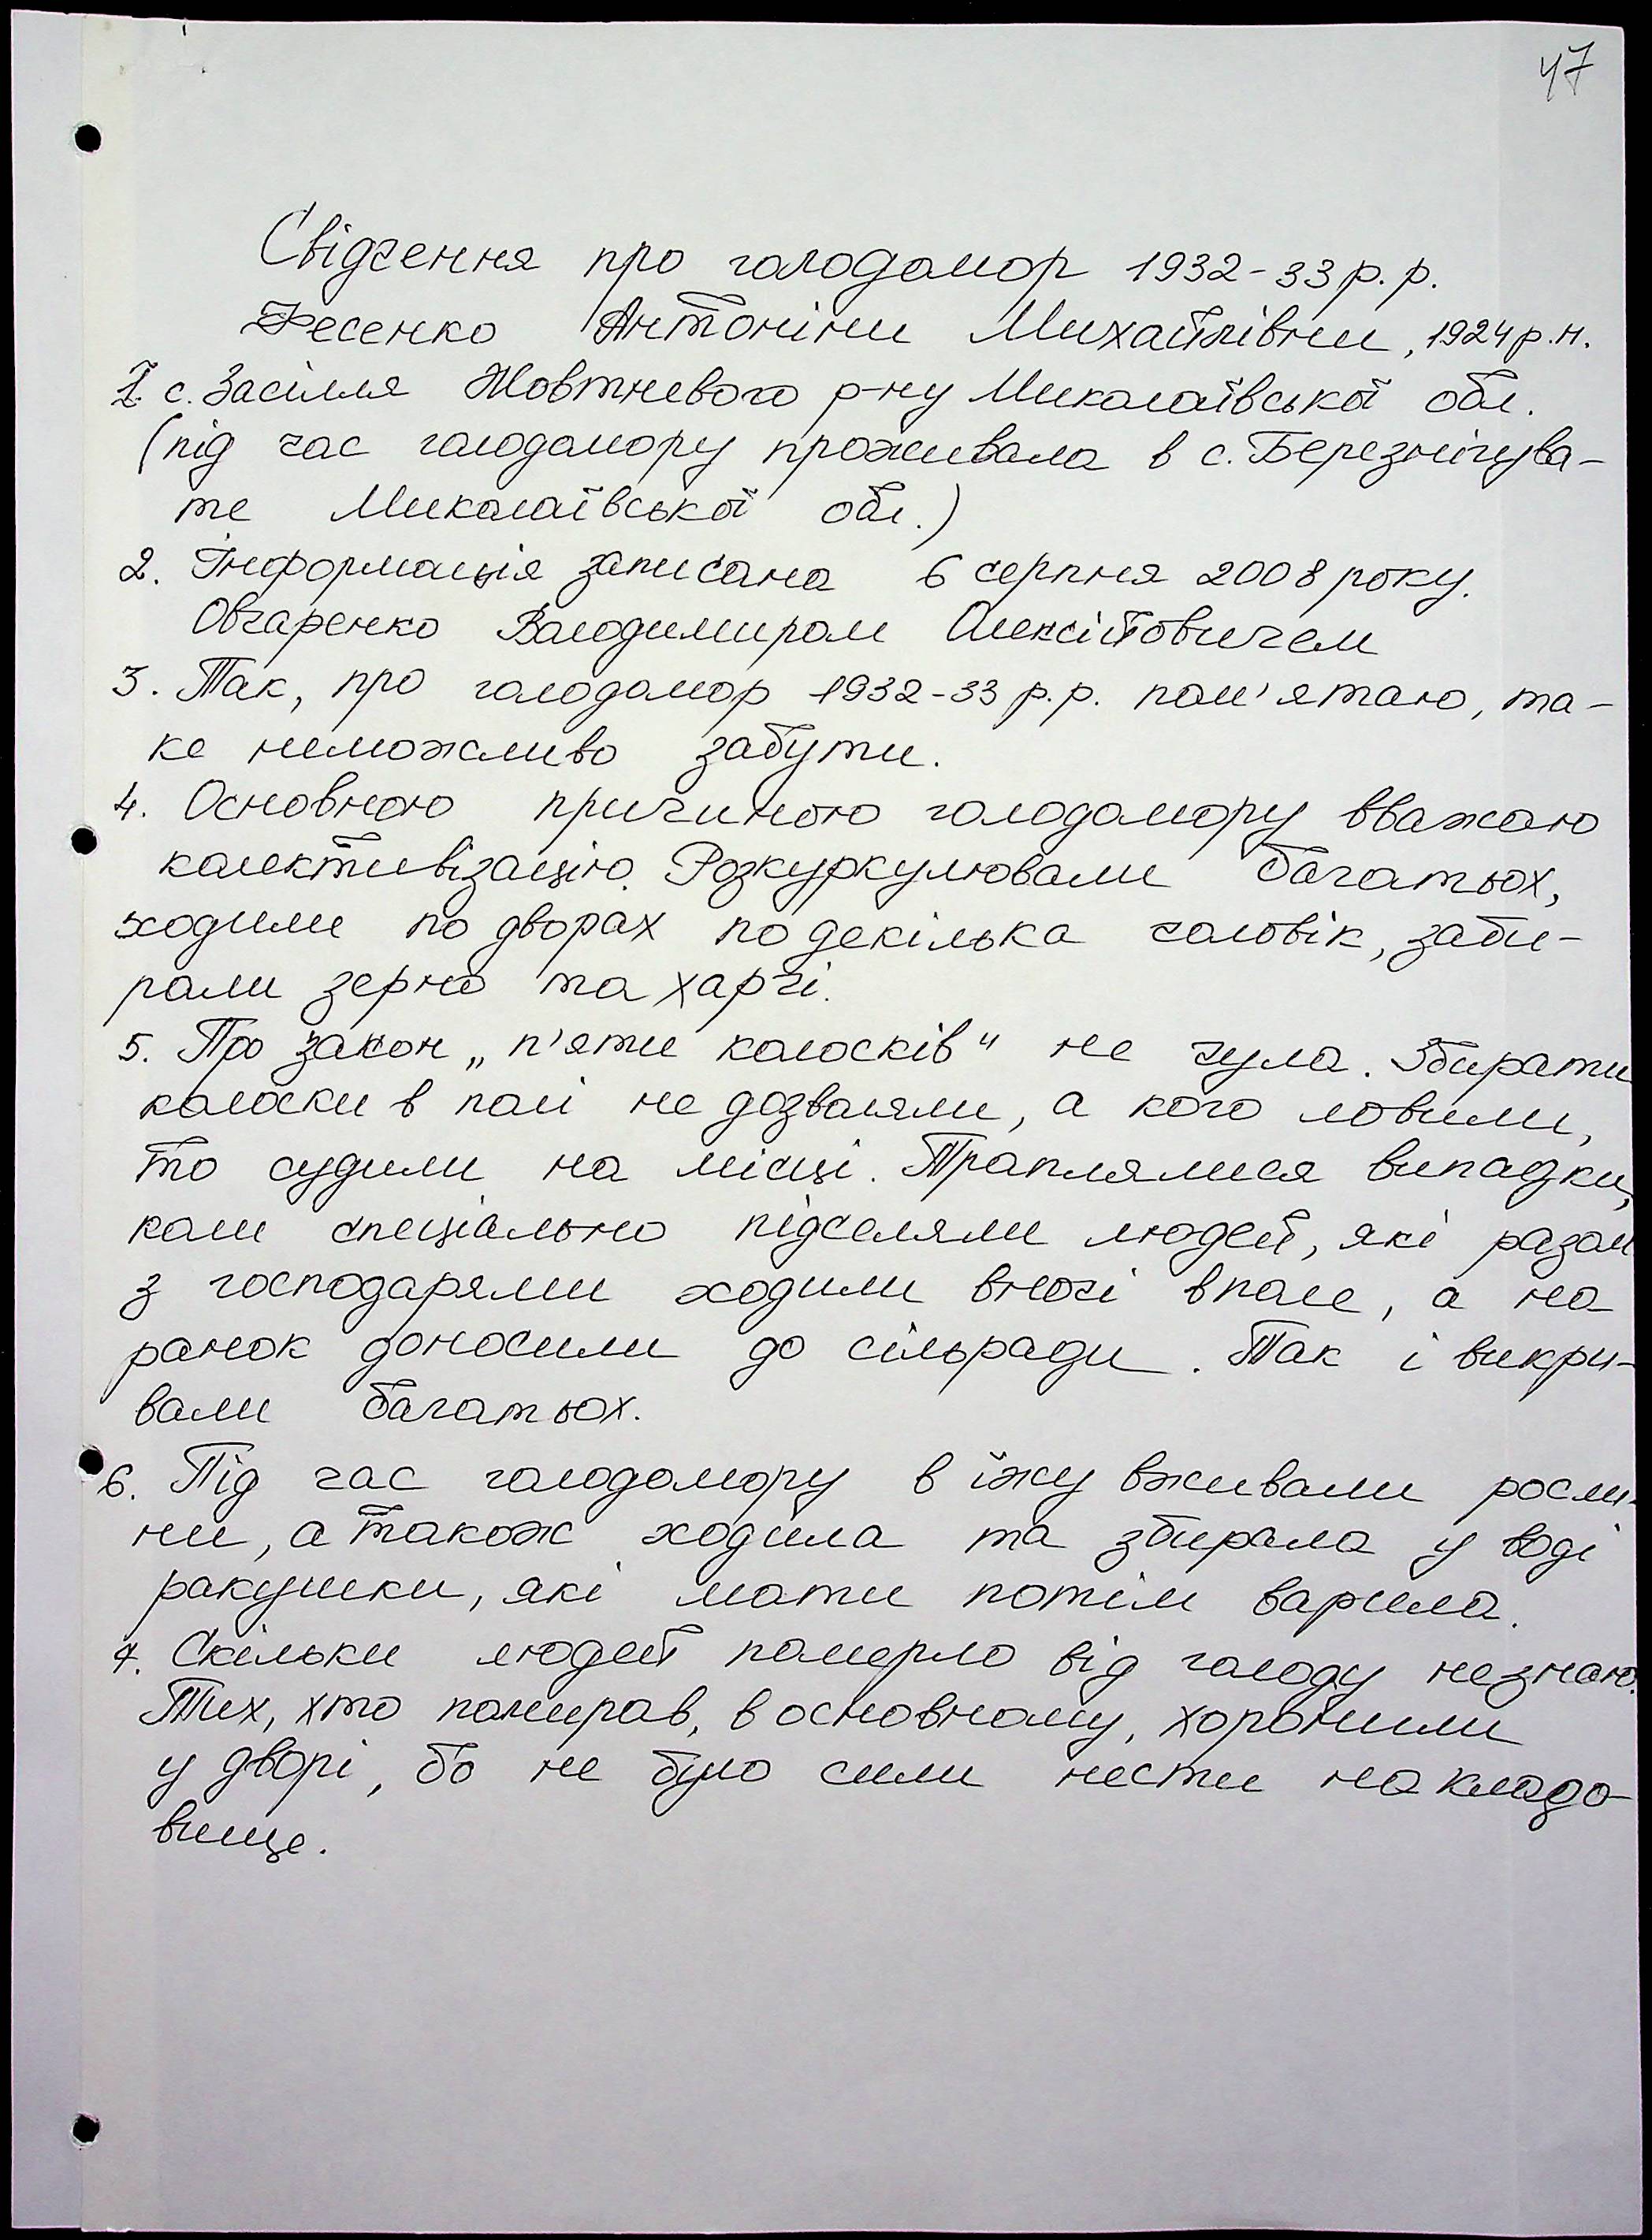 47
Свідчення про голодомор 1932-33 р.р.
Фесенко Антоніни Михайлівни, 1924 р.н.
1. с. Засілля Жовтневого р-ну Миколаївської обл.
(під час голодомору проживала в с. Березнігува-
те Миколаївської обл.)
2. Інформація записана 6 серпня 2008 року.
Овчаренко Володимиром Олексійовичем
3. Так, про голодомор 1932-33 р.р. пам'ятаю, та-
ке неможливо забути.
4. Основною причиною голодомору вважаю
колективізацію. Розкуркулювали багатьох,
ходили по дворах по декілька чоловік, заби-
рали зерно та харчі.
5. Про закон „п'яти колосків" не чула. Збирати
колоски в полі не дозволяли, а кого ловили,
то судили на місці. Траплялися випадки,
коли спеціально підселяли людей, які разом
з господарями ходили вночі в поле, а на
ранок доносили до сільради. Так і викри-
вали багатьох.
6. Під час голодомору в їжу вживали росли-
ни, а також ходила та збирала у воді
ракушки, які мати потім варила.
7. Скільки людей померло від голоду не знаю.
Тих, хто помирав, в основному, хоронили
у дворі, бо не було сили нести на кладо-
вище.